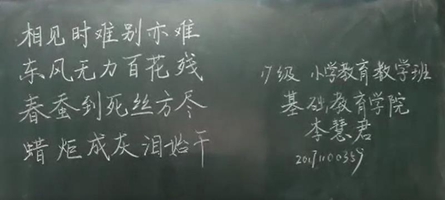 相见时难别亦难
东风无力百花残
春蚕到死丝方尽
蜡炬成灰泪始干
17级 小学教育教学班
基础教育学院
李慧君